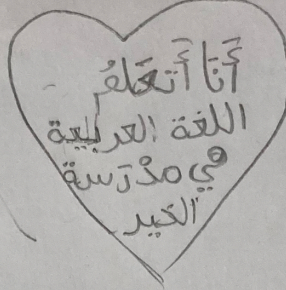 أَنَا أَتَعَلَمُ
اللغة العربية
في مدْرَسة
الخير